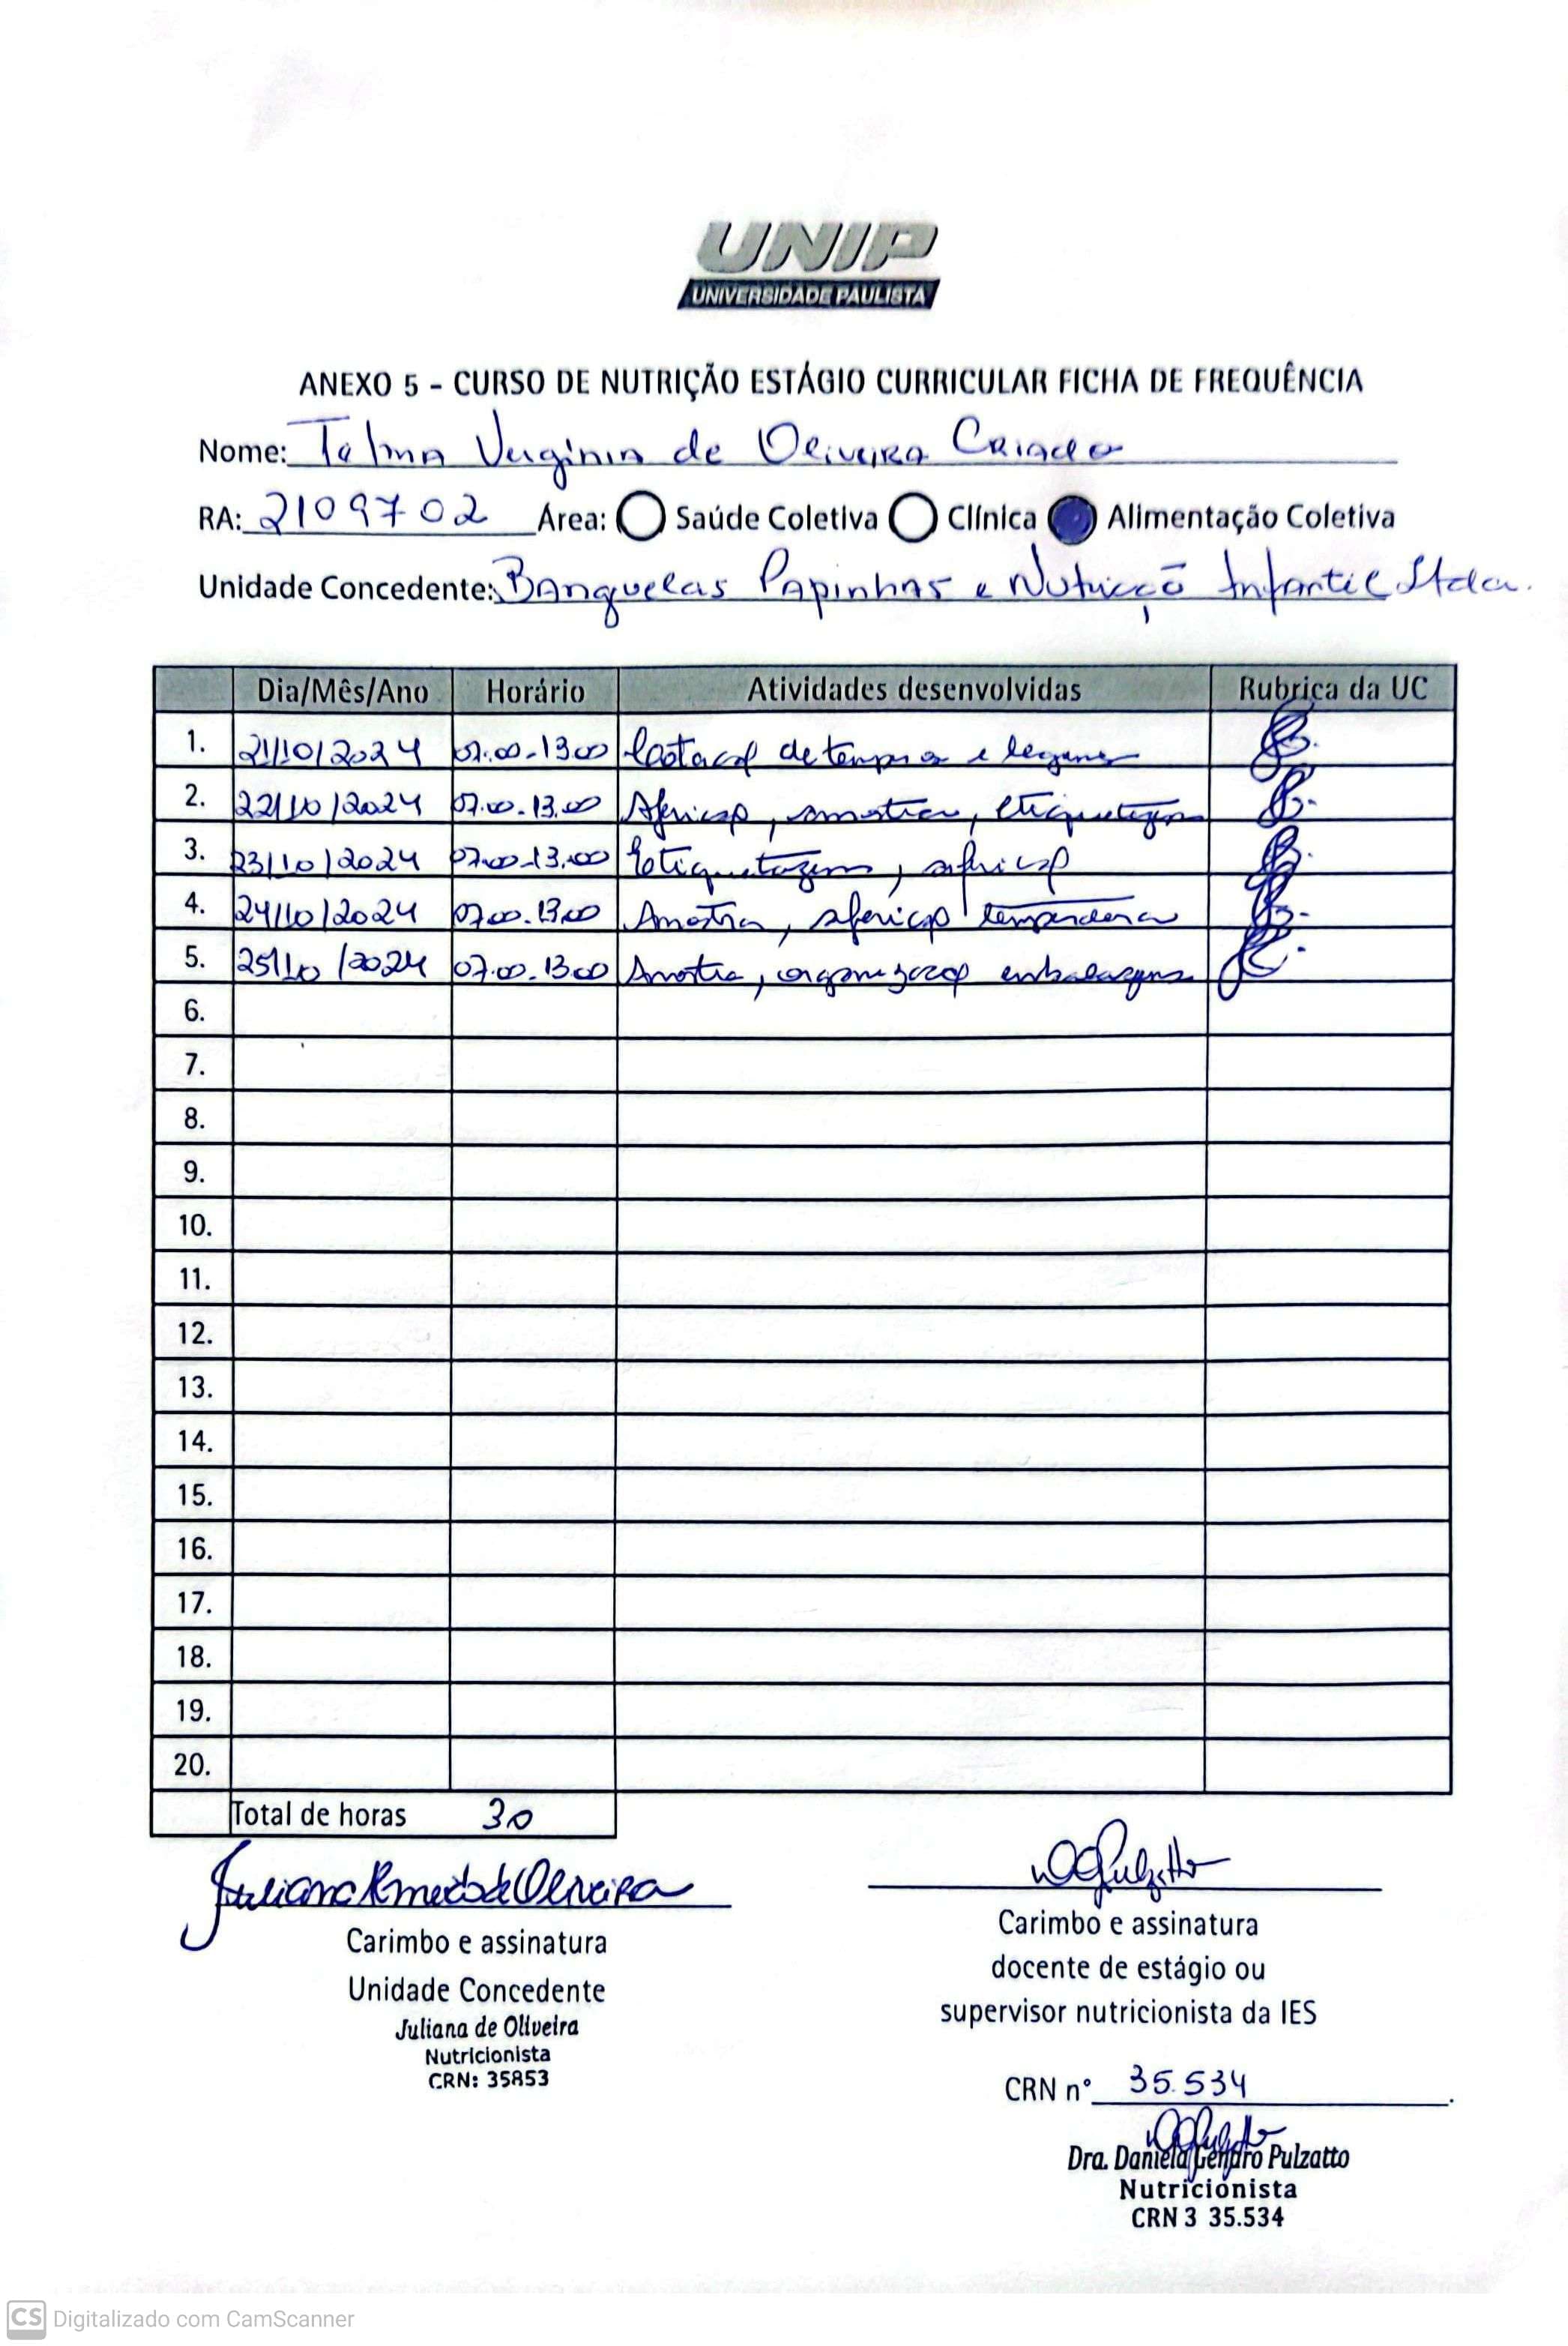 UNIP
UNIVERSIDADE PAULISTA
ANEXO 5 - CURSO DE NUTRIÇÃO ESTÁGIO CURRICULAR FICHA DE FREQUÊNCIA
Nome: Talma Verginia de Oliveira Criado
RA: 2109702 Área: Saúde Coletiva Clínica Alimentação Coletiva
Unidade Concedente: Banguelas Papinhas e Nutrição Infantil Ltda.
Dia/Mês/Ano Horário Atividades desenvolvidas Rubrica da UC
1. 21/10/2024 07:00-13:00 de e legumes
2. 22/10/2024 07:00-13:00 Aferição, amostra, etiquetagem
3. 23/10/2024 07:00-13:00 Etiquetagem, aferição
4. 24/10/2024 07:00-13:00 Amostra, aferição temperatura
5. 25/10/2024 07:00-13:00 Amostra, organização embalagens
6.
7.
8.
9.
10.
11.
12.
13.
14.
15.
16.
17.
18.
19.
20.
Total de horas 30
Juliana de Oliveira
Carimbo e assinatura
Unidade Concedente
Juliana de Oliveira
Nutricionista
CRN: 35853
Pulzatto
Carimbo e assinatura
docente de estágio ou
supervisor nutricionista da IES
CRN nº 35.534.
Dra. Daniela Gendro Pulzatto
Nutricionista
CRN 3 35.534
CS Digitalizado com CamScanner